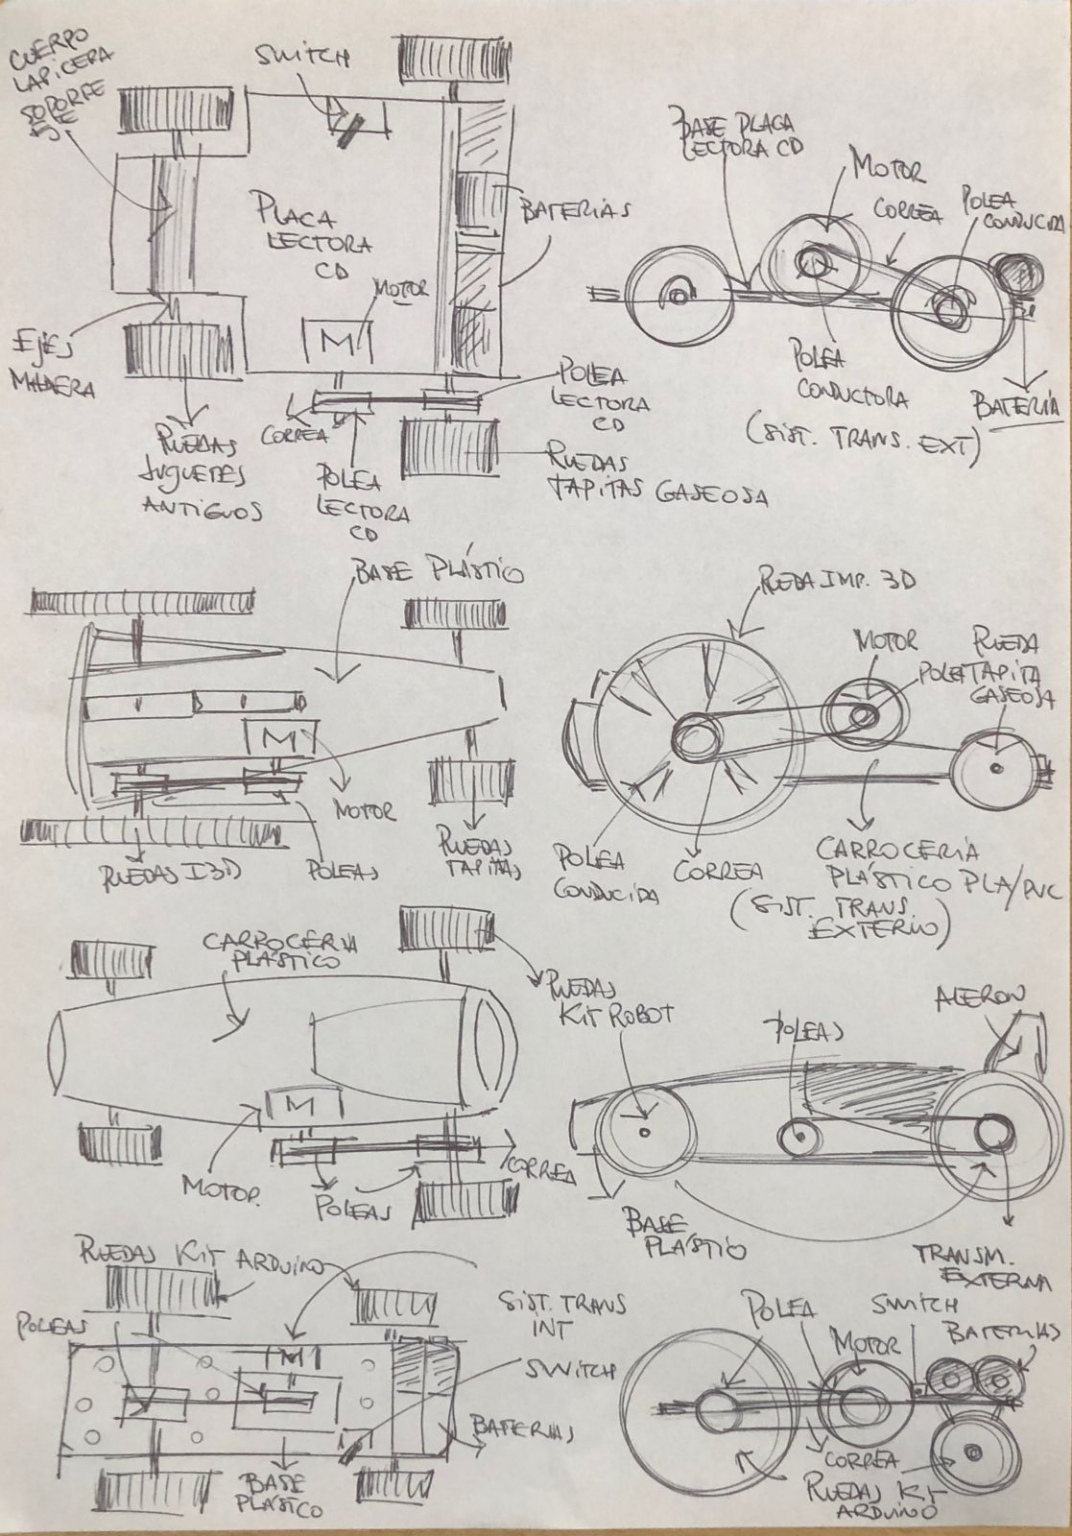 CUERPO
LAPICERA
SOPORTE
EJE
SWITCH
PLACA
LECTORA
CD
MOTOR
M
BATERIAS
EJES
MADERA
RUEDAS
JUGUETES
ANTIGUOS
CORREA
POLEA
LECTORA
CD
POLEA
LECTORA
CD
RUEDAS
TAPITAS GASEOSA
BASE PLACA
LECTORA CD
MOTOR
CORREA
POLEA
CONDUCIDA
POLEA
CONDUCTORA
(SIST. TRANS. EXT)
BATERIA
BASE PLÁSTICO
M
MOTOR
RUEDAS I3D
POLEAS
RUEDAS
TAPITAS
RUEDA IMP. 3D
MOTOR
POLEA
RUEDA
TAPITA
GASEOSA
POLEA
CONDUCIDA
CORREA
CARROCERIA
PLÁSTICO PLA/PVC
(SIST. TRANS.
EXTERNO)
CARROCERIA
PLÁSTICO
M
MOTOR.
POLEAS
CORREA
RUEDAS
KIT ROBOT
POLEAS
ALERON
BASE
PLÁSTICO
TRANSM.
EXTERNA
RUEDAS KIT ARDUINO
POLEAS
M
SIST. TRANS
INT
SWITCH
BATERIAS
BASE
PLÁSTICO
POLEA
MOTOR
SWITCH
BATERIAS
CORREA
RUEDAS KIT
ARDUINO